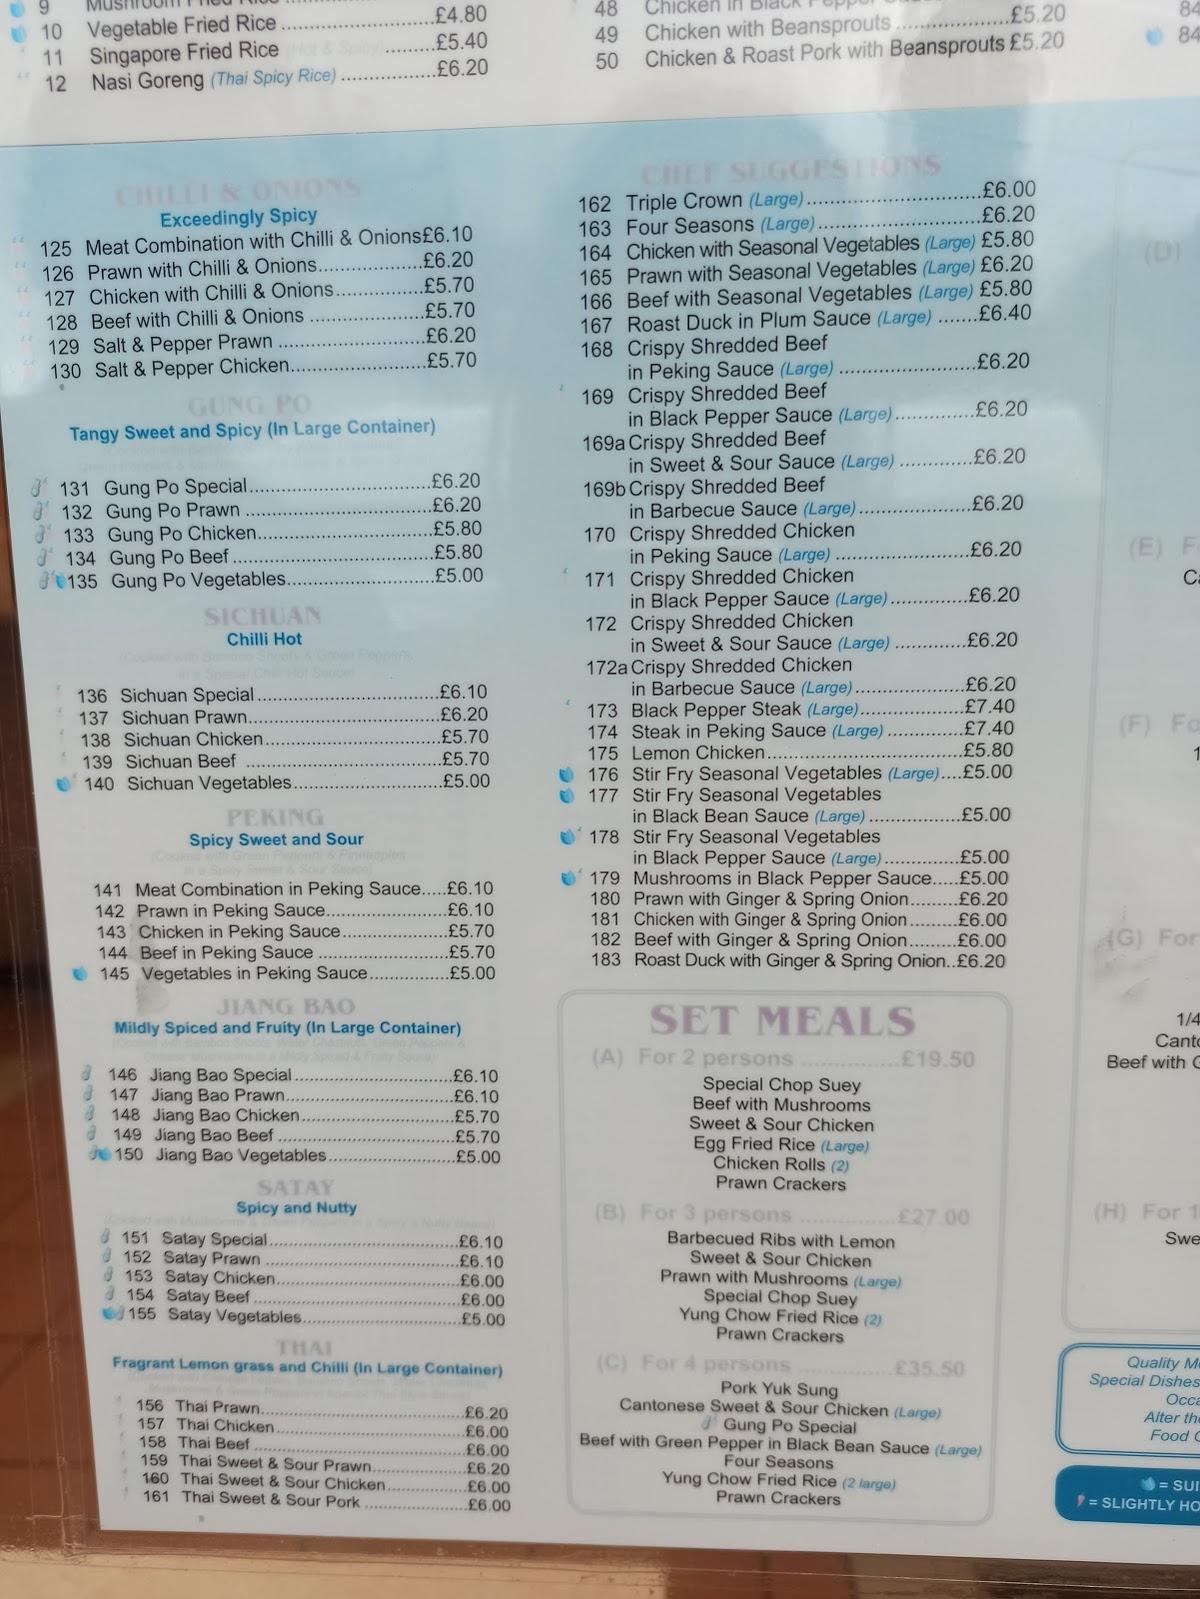 9 Mushroom Fried Rice
10 Vegetable Fried Rice ....................£4.80
11 Singapore Fried Rice (Hot & Spicy) ...........£5.40
12 Nasi Goreng (Thai Spicy Rice) ................£6.20
48 Chicken in Black Pepper
49 Chicken with Beansprouts ....................£5.20
50 Chicken & Roast Pork with Beansprouts £5.20
84
84
CHILLI & ONIONS
Exceedingly Spicy
125 Meat Combination with Chilli & Onions£6.10
126 Prawn with Chilli & Onions...................£6.20
127 Chicken with Chilli & Onions................£5.70
128 Beef with Chilli & Onions ....................£5.70
129 Salt & Pepper Prawn ..........................£6.20
130 Salt & Pepper Chicken.........................£5.70
GUNG PO
Tangy Sweet and Spicy (In Large Container)
131 Gung Po Special.................................£6.20
132 Gung Po Prawn .................................£6.20
133 Gung Po Chicken...............................£5.80
134 Gung Po Beef ...................................£5.80
135 Gung Po Vegetables..........................£5.00
SICHUAN
Chilli Hot
(Cooked with Bamboo Shoots & Green Peppers
in a Special Chilli Hot Sauce)
136 Sichuan Special.................................£6.10
137 Sichuan Prawn..................................£6.20
138 Sichuan Chicken................................£5.70
139 Sichuan Beef ...................................£5.70
140 Sichuan Vegetables...........................£5.00
PEKING
Spicy Sweet and Sour
(Cooked with Green Peppers & Pineapples
in a Spicy Sweet & Sour Sauce)
141 Meat Combination in Peking Sauce.....£6.10
142 Prawn in Peking Sauce......................£6.10
143 Chicken in Peking Sauce...................£5.70
144 Beef in Peking Sauce .......................£5.70
145 Vegetables in Peking Sauce..............£5.00
JIANG BAO
Mildly Spiced and Fruity (In Large Container)
(Cooked with Bamboo Shoots, Water Chestnuts, Green Peppers &
Chinese Mushrooms in a Mildly Spiced & Fruity Sauce)
146 Jiang Bao Special..............................£6.10
147 Jiang Bao Prawn................................£6.10
148 Jiang Bao Chicken.............................£5.70
149 Jiang Bao Beef .................................£5.70
150 Jiang Bao Vegetables........................£5.00
SATAY
Spicy and Nutty
(Cooked with Mushrooms & Green Peppers in a Spicy & Nutty Sauce)
151 Satay Special....................................£6.10
152 Satay Prawn .....................................£6.10
153 Satay Chicken...................................£6.00
154 Satay Beef .......................................£6.00
155 Satay Vegetables..............................£5.00
THAI
Fragrant Lemon grass and Chilli (In Large Container)
156 Thai Prawn........................................£6.20
157 Thai Chicken.....................................£6.00
158 Thai Beef .........................................£6.00
159 Thai Sweet & Sour Prawn..................£6.20
160 Thai Sweet & Sour Chicken...............£6.00
161 Thai Sweet & Sour Pork ...................£6.00
CHEF SUGGESTIONS
162 Triple Crown (Large)..............................£6.00
163 Four Seasons (Large)............................£6.20
164 Chicken with Seasonal Vegetables (Large) £5.80
165 Prawn with Seasonal Vegetables (Large) £6.20
166 Beef with Seasonal Vegetables (Large) £5.80
167 Roast Duck in Plum Sauce (Large) .......£6.40
168 Crispy Shredded Beef
in Peking Sauce (Large) ........................£6.20
169 Crispy Shredded Beef
in Black Pepper Sauce (Large)..............£6.20
169a Crispy Shredded Beef
in Sweet & Sour Sauce (Large) .............£6.20
169b Crispy Shredded Beef
in Barbecue Sauce (Large)....................£6.20
170 Crispy Shredded Chicken
in Peking Sauce (Large) ........................£6.20
171 Crispy Shredded Chicken
in Black Pepper Sauce (Large)..............£6.20
172 Crispy Shredded Chicken
in Sweet & Sour Sauce (Large) .............£6.20
172a Crispy Shredded Chicken
in Barbecue Sauce (Large)....................£6.20
173 Black Pepper Steak (Large)...................£7.40
174 Steak in Peking Sauce (Large) ..............£7.40
175 Lemon Chicken....................................£5.80
176 Stir Fry Seasonal Vegetables (Large)....£5.00
177 Stir Fry Seasonal Vegetables
in Black Bean Sauce (Large) .................£5.00
178 Stir Fry Seasonal Vegetables
in Black Pepper Sauce (Large)..............£5.00
179 Mushrooms in Black Pepper Sauce.....£5.00
180 Prawn with Ginger & Spring Onion.........£6.20
181 Chicken with Ginger & Spring Onion......£6.00
182 Beef with Ginger & Spring Onion.........£6.00
183 Roast Duck with Ginger & Spring Onion..£6.20
SET MEALS
(A) For 2 persons ..............£19.50
Special Chop Suey
Beef with Mushrooms
Sweet & Sour Chicken
Egg Fried Rice (Large)
Chicken Rolls (2)
Prawn Crackers
(B) For 3 persons ..............£27.00
Barbecued Ribs with Lemon
Sweet & Sour Chicken
Prawn with Mushrooms (Large)
Special Chop Suey
Yung Chow Fried Rice (2)
Prawn Crackers
(C) For 4 persons ..............£35.50
Pork Yuk Sung
Cantonese Sweet & Sour Chicken (Large)
Gung Po Special
Beef with Green Pepper in Black Bean Sauce (Large)
Four Seasons
Yung Chow Fried Rice (2 large)
Prawn Crackers
(D)
(E) F
Ca
(F) Fo
1
(G) For
1/4
Canto
Beef with G
(H) For 1
Swe
Quality M
Special Dishes
Occa
Alter the
Food
= SUI
= SLIGHTLY HO